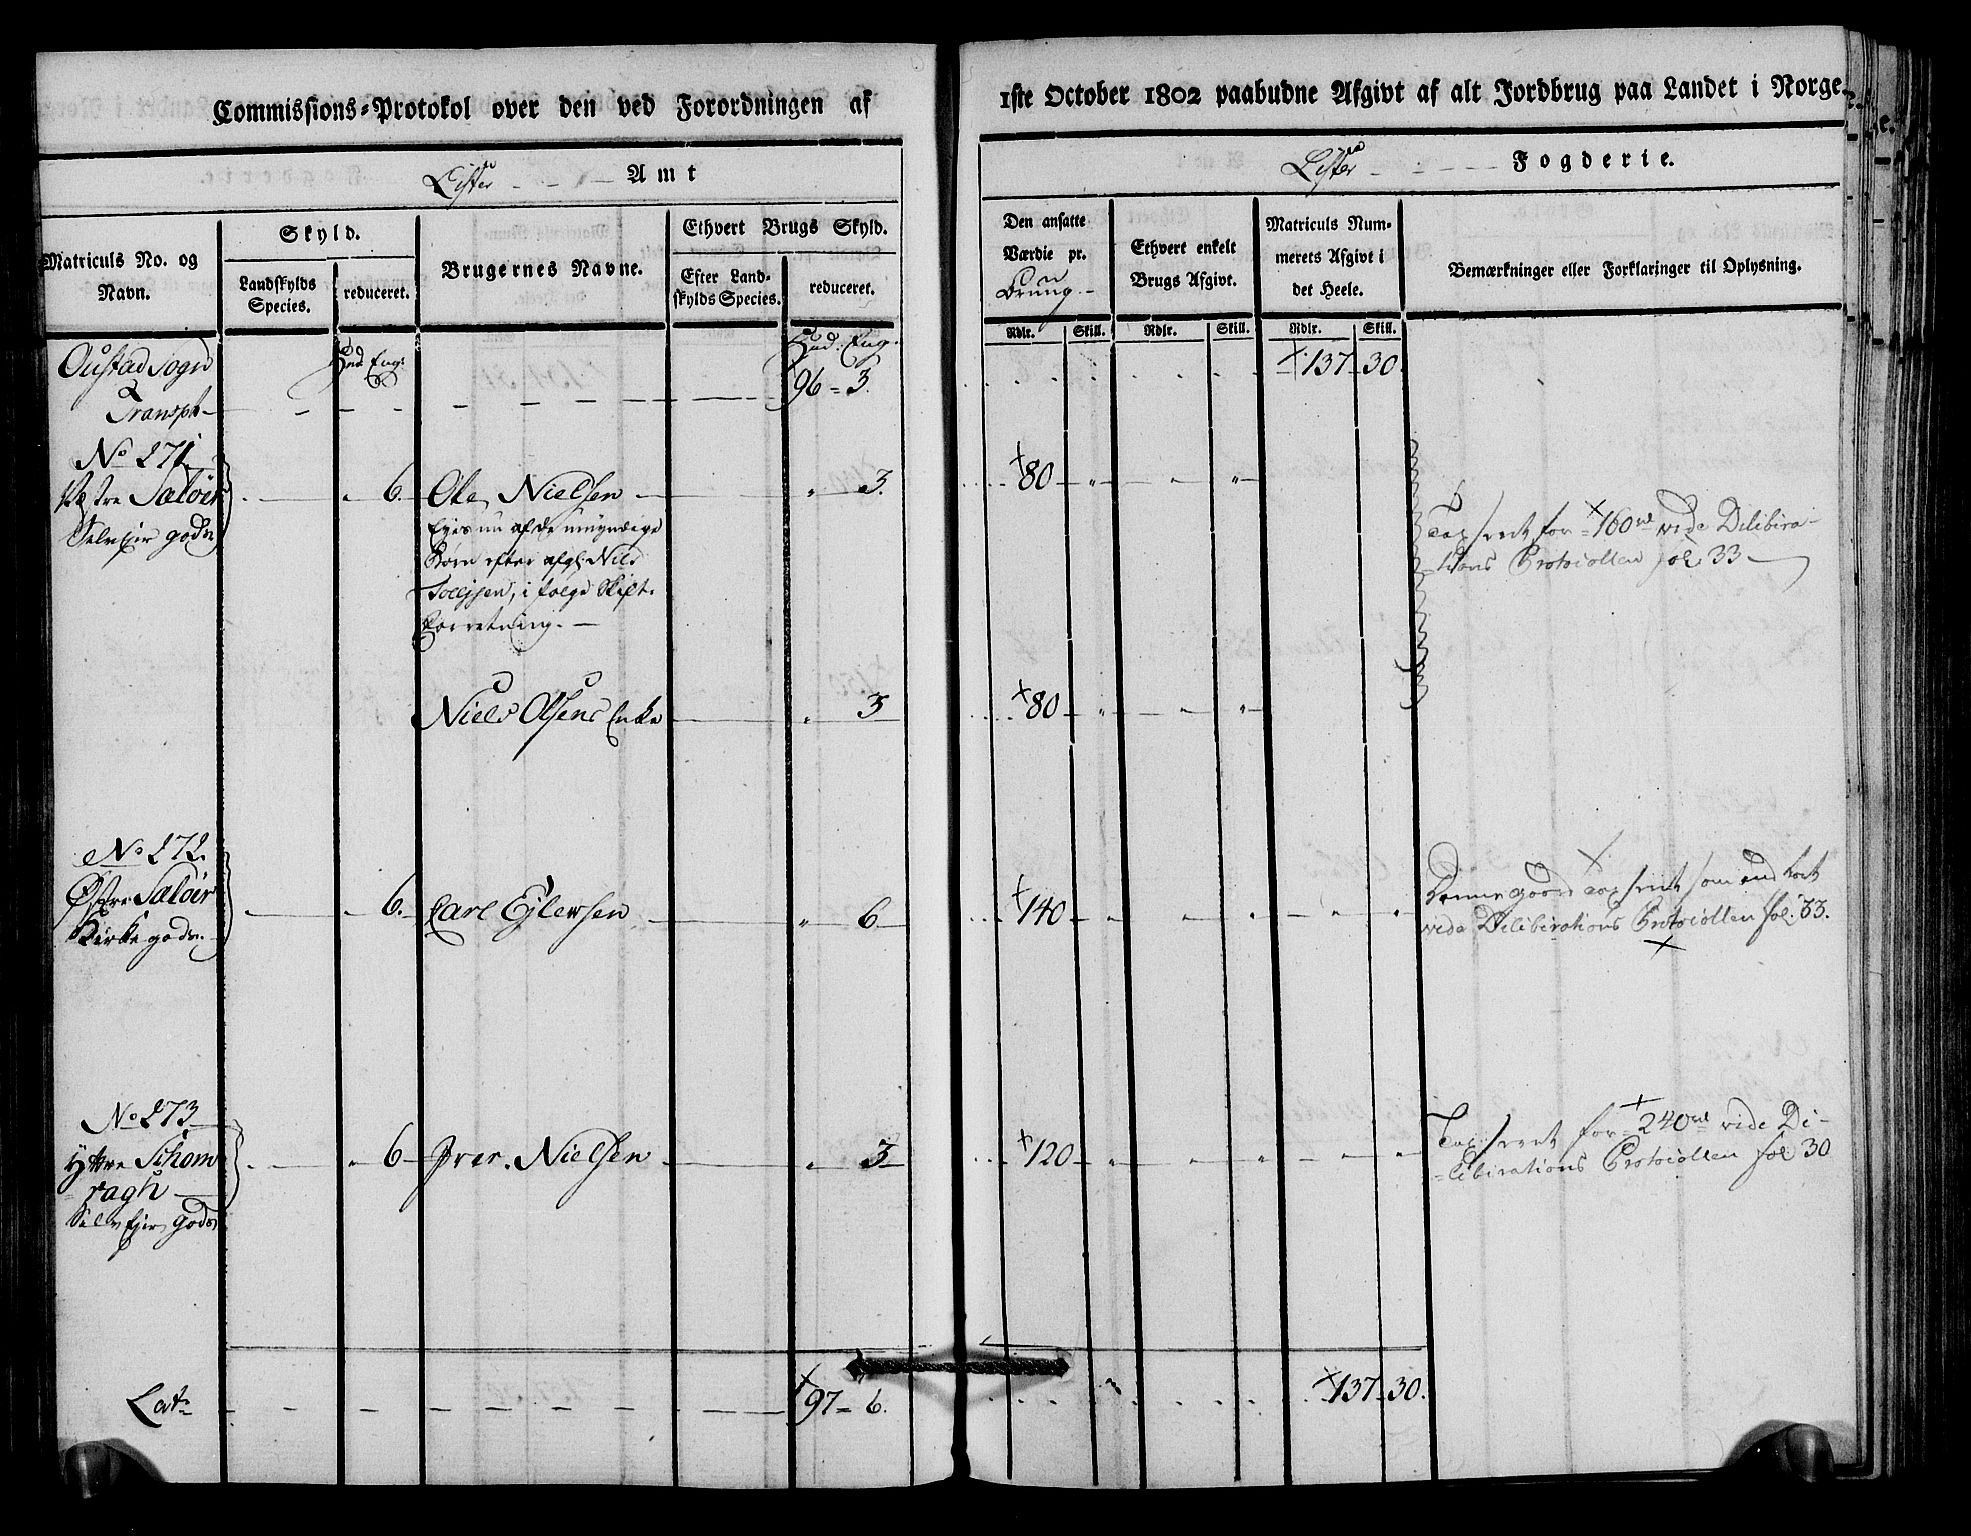 Commissions-Protokol over den ved Forordningen af
1ste October 1802 paabudne Afgivt af alt Jordbrug paa Landet i Norge.
Lister - - - Amt
Lister - - - - Fogderie.
Matriculs No. og
Navn.
Skyld.
Landskylds
Species.
reduceret.
Brugernes Navne.
Ethvert Brugs Skyld.
Efter Land-
skylds Species.
reduceret.
Den ansatte
Værdie pr.
Brug.
Ethvert enkelt
Brugs Afgivt.
Matriculs Num-
merets Afgivt i
det Heele.
Bemærkninger eller Forklaringer til Oplysning.
Rdlr. Skill. Rdlr. Skill. Rdlr. Skill.
Oustad Sogn
Transpt
Hud. Eng.
Hud. Eng.
96 = 3.
137 - 30.
No 271
Vestre Sæløer
Selv Eier gods
6. Ole Nielsen - 3. 80
Eyes nu af de umyndige
Børn efter afgl. Niels
Tollefsen, i følge Skift-
forretning. -
Taxseret for 160 rd vide Delibira-
tions Protocollen fol. 33
Niels Olsens Enke 3 80
No 272.
Østre Sæløer
Kirkegods.
6. Carl Ejlersen 6 140
Denne gaard Taxseret som
vide Deliberations Protocollen fol. 33.
No 273
Yttre Schom
ragh
Selv Eier gods
6 Iver Nielsen 3 120
Taxseret for 240 rd vide De-
liberations Protocollen fol 30
Lat. 97 = 6. 137 - 30.